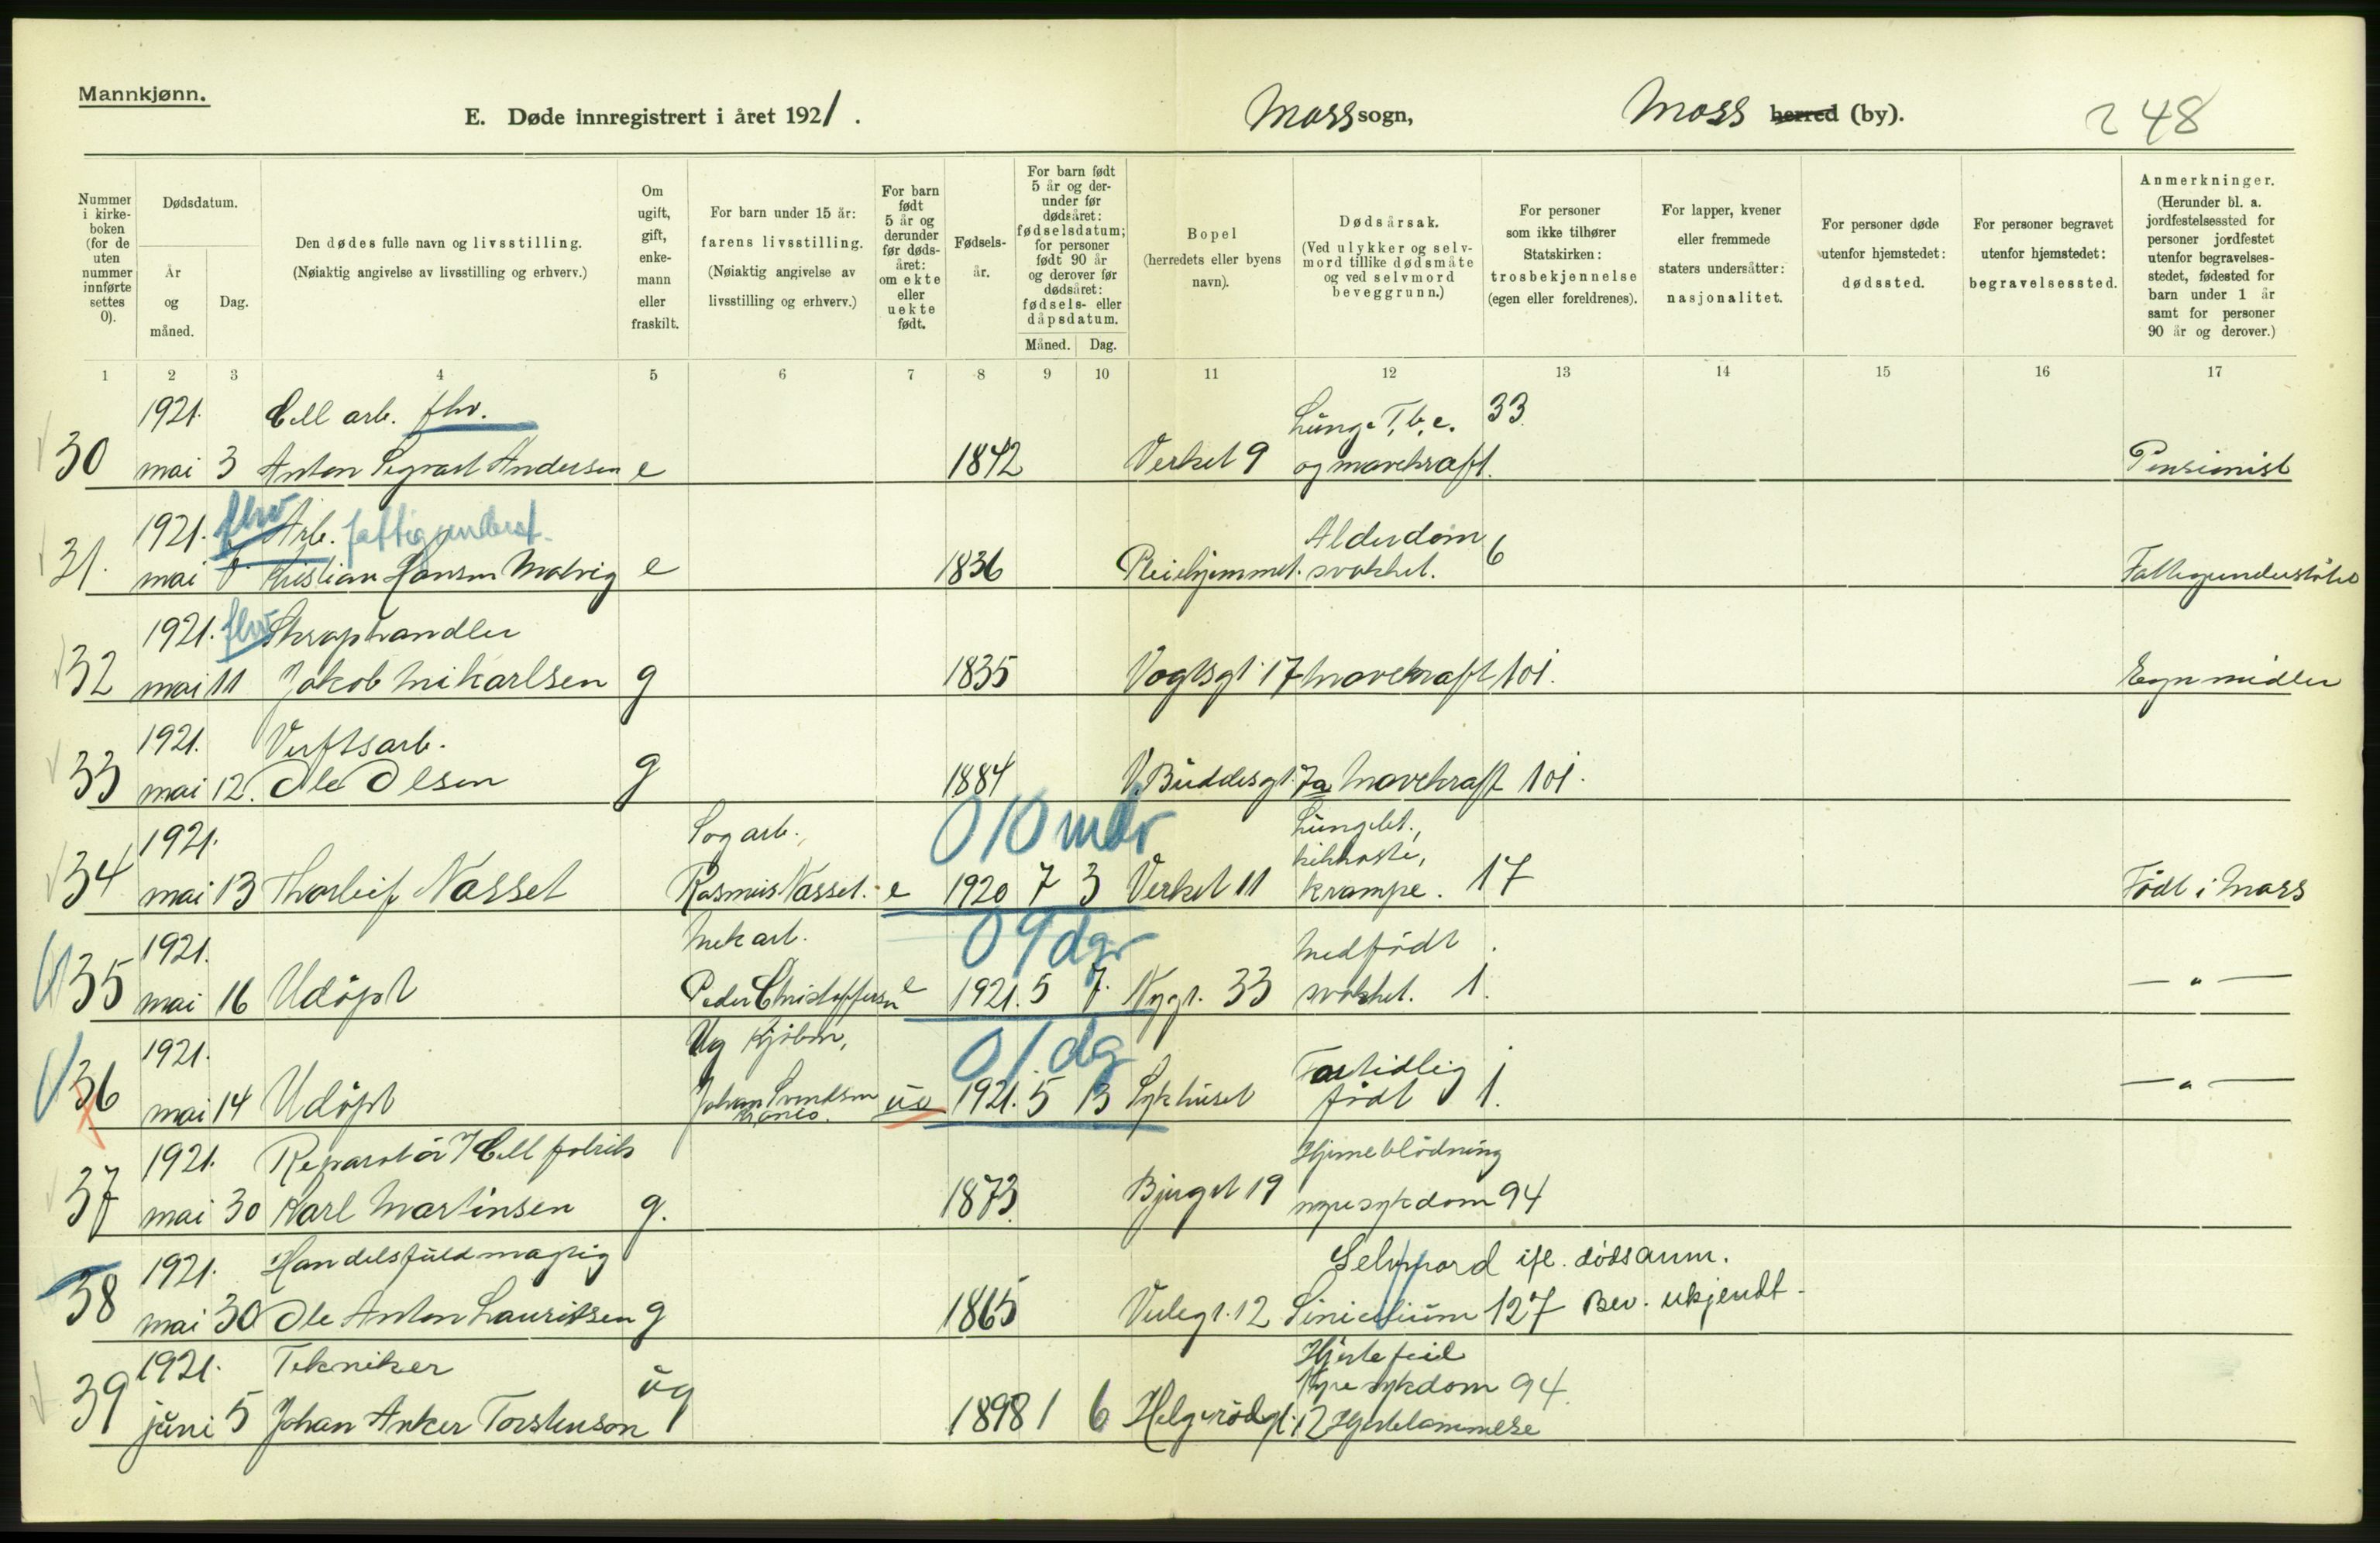 Mannkjønn.
E. Døde innregistrert i året 1921.
Moss sogn,
Moss herred (by).
248
Nummer i kirkeboken (for de uten nummer innførte settes 0).
Dødsdatum.
År og måned.
Dag.
Den dødes fulle navn og livsstilling.
(Nøiaktig angivelse av livsstilling og erhverv.)
Om ugift, gift, enkemann eller fraskilt.
For barn under 15 år:
farens livsstilling.
(Nøiaktig angivelse av livsstilling og erhverv.)
For barn født 5 år og derunder før dødsåret: om ekte eller uekte født.
Fødselsår.
For barn født 5 år og derunder før dødsåret: fødselsdatum; for personer født 90 år og derover før dødsåret: fødsels- eller dåpsdatum.
Måned. Dag.
Bopel
(herredets eller byens navn).
Dødsårsak.
(Ved ulykker og selvmord tillike dødsmåte og ved selvmord beveggrunn.)
For personer som ikke tilhører Statskirken: trosbekjennelse (egen eller foreldrenes).
For lapper, kvener eller fremmede staters undersåtter: nasjonalitet.
For personer døde utenfor hjemstedet: dødssted.
For personer begravet utenfor hjemstedet: begravelsessted.
Anmerkninger.
(Herunder bl. a. jordfestelsessted for personer jordfestet utenfor begravelsesstedet, fødested for barn under 1 år samt for personer 90 år og derover.)
1 2 3 4 5 6 7 8 9 10 11 12 13 14 15 16 17
1921. Cell arb. fhv. Lunge T.b.c. 33
30 mai 3 Anton Andersen e 1842 Verket 9 og mavekraft. Pensionist
1921. fhv Arb. fattigunderst. Alderdom
31. mai Kristian Hansen Malvig e 1836 Pleiehjemmet. svakhet. 6 Fattigunderstøtet
1921. fhv Skraphandler
32 mai 11 Jakob Mikarlsen g 1835 Vogtsgt 17 Mavekraft 101. Egne midler
1921. Verftsarb.
33 mai 12. Ole Olsen g 1884 V. Buddesgt. 7a Mavekraft 101.
1921. Sagarb. 0 10 mdr Lungebet., kikhoste,
34 mai 13 Thorleif Nasset Rasmus Nasset. e 1920 7 3 Verket 11 krampe. 17 Født i Moss
1921. Mek arb. 0 9 dgr Medfødt
35 mai 16 Udøpt Peder Christoffersen e 1921. 5 7. Nygt. 33 svakhet. 1. — " —
1921. Ug Kjøbm, 0 1 dg Fortidlig
36 mai 14 Udøpt Johan Svendsen ue 1921. 5 13 Sykhuset født 1. — " —
1921. Reparatør v/ Cell fabrik Hjerneblødning
37 mai 30 Karl Martinsen g. 1873. Bjerget 19 nyresykdom 94
1921. Handelsfuldmægtig Selvmord ifl. dødsanm.
38 mai 30 Ole Anton Lauritsen g 1865 12 127 Bev. ukjendt.
1921. Tekniker Hjertefeil
Nyresykdom 94
39 juni 5 Johan Anker Torstenson ug 1898 1 6 Helgerødgt. 12 Hjertelammelse